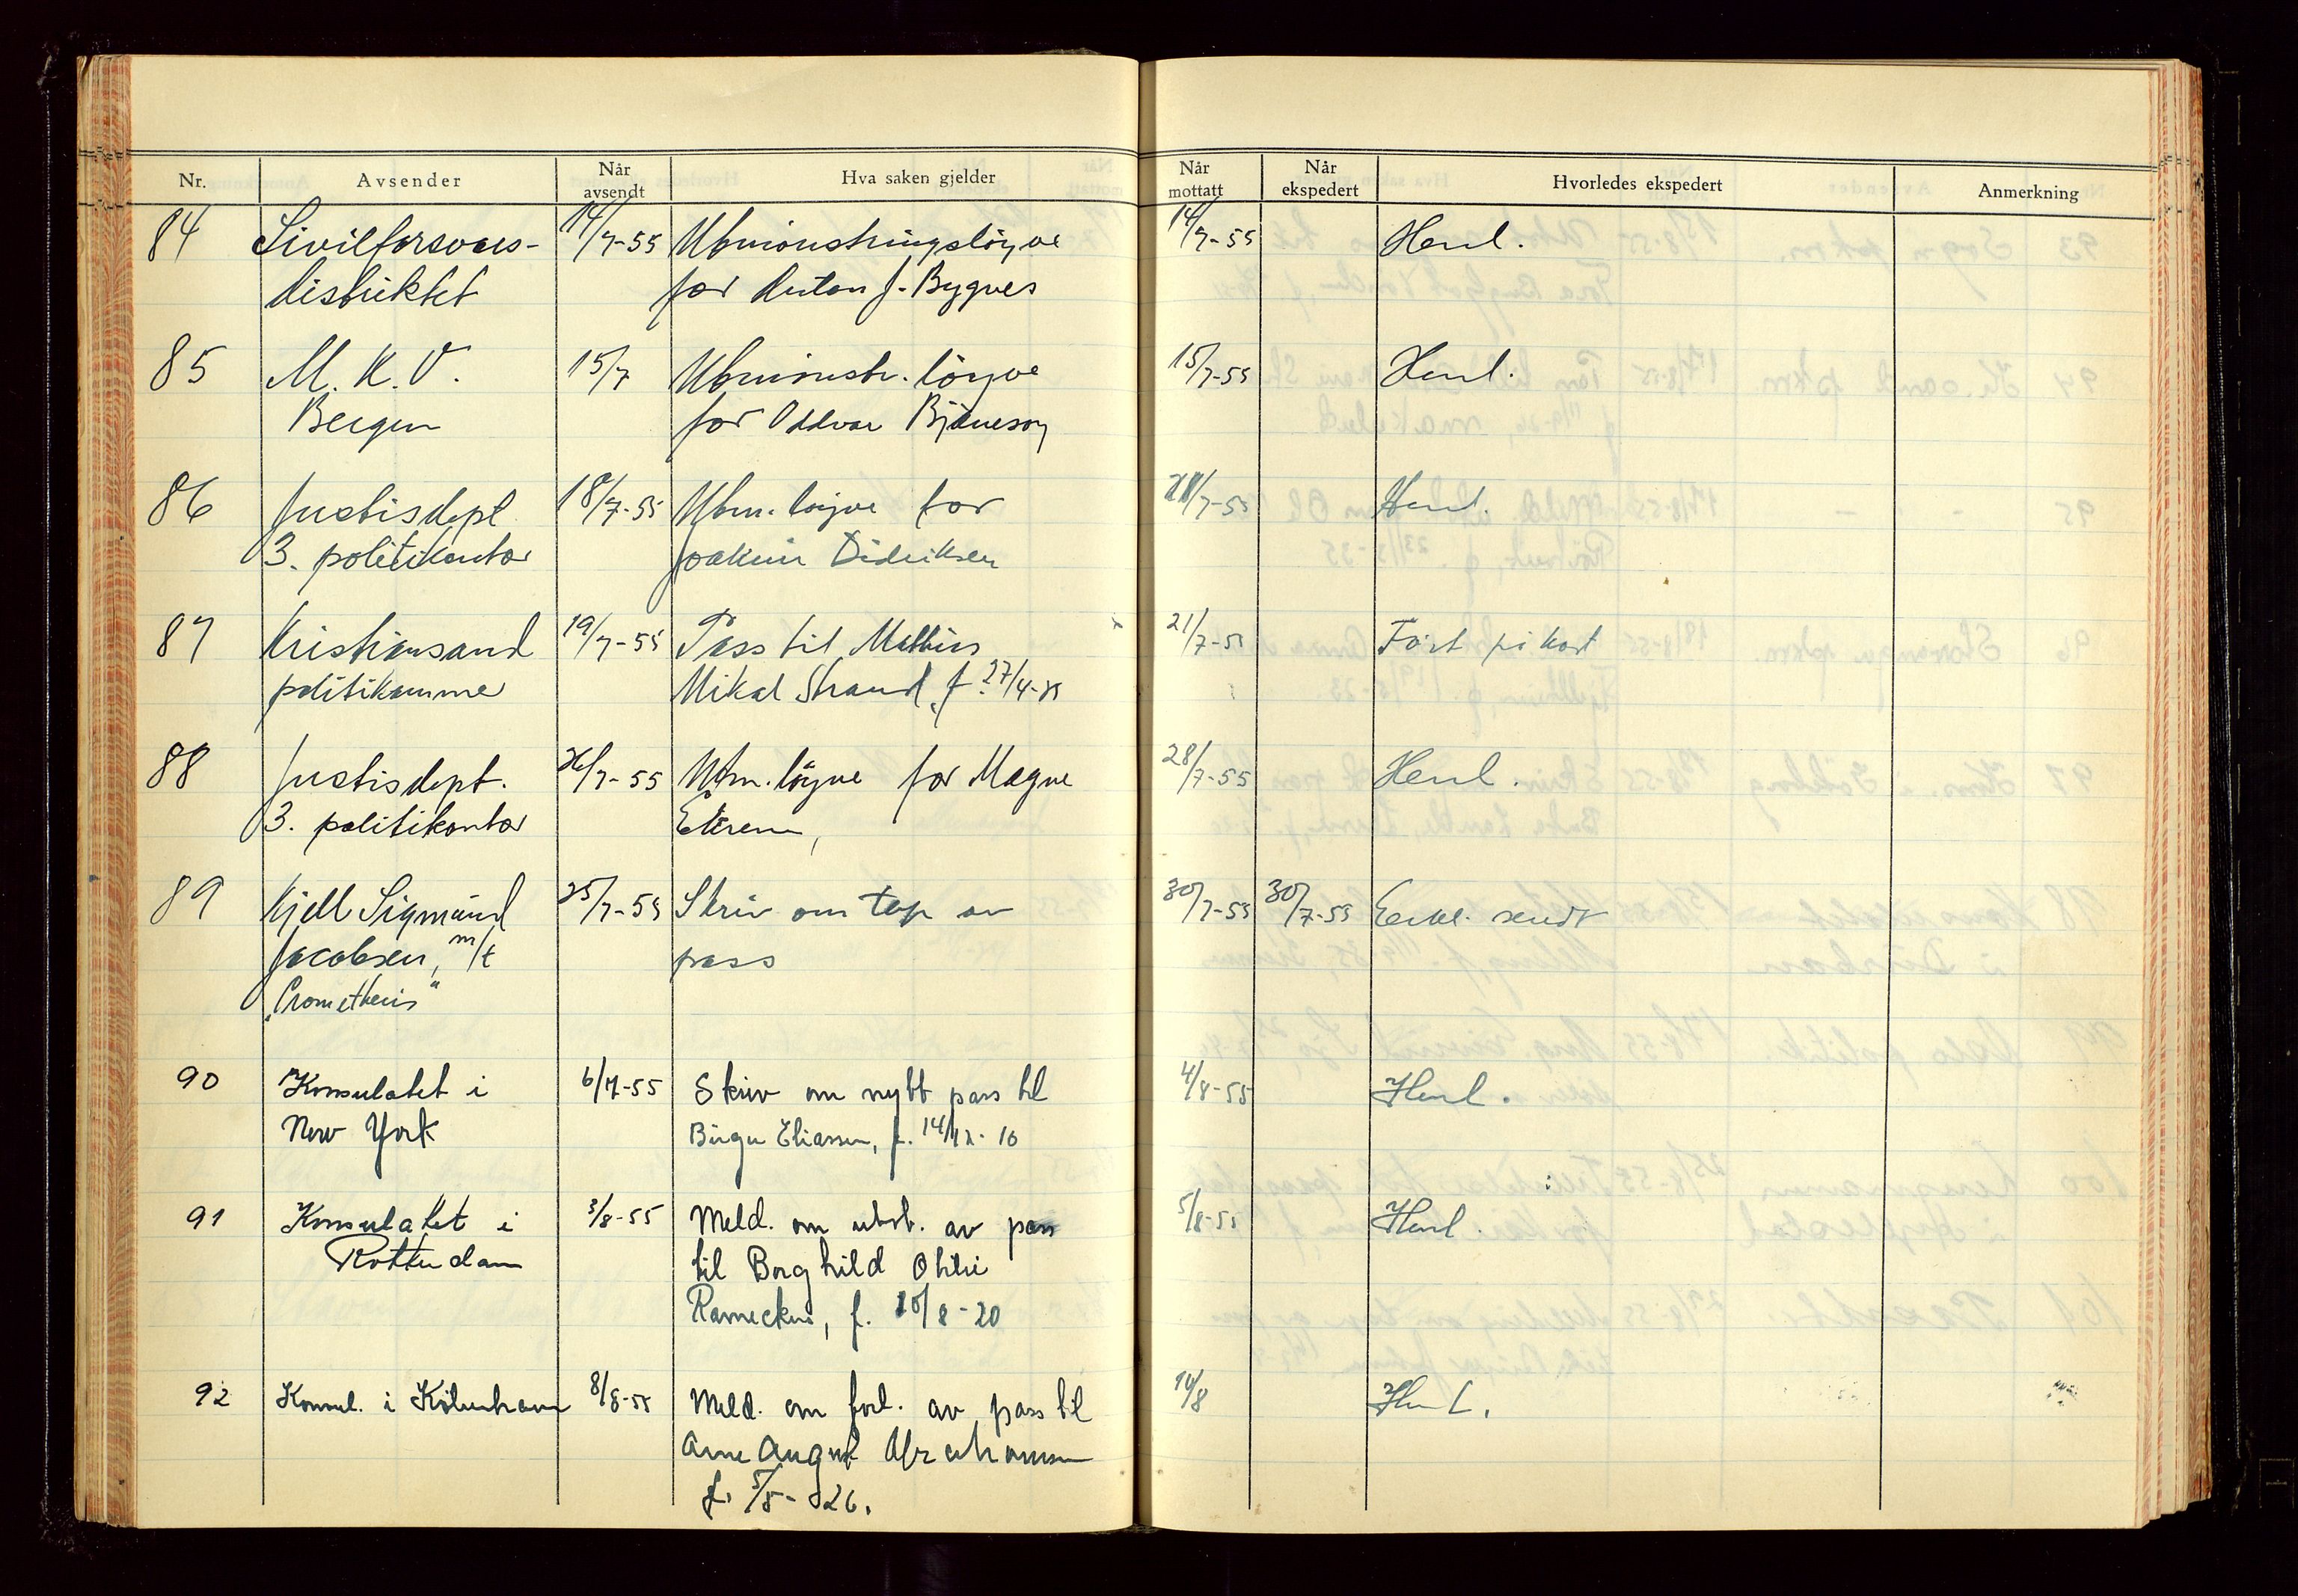 Nr. Avsender Når avsendt Hva saken gjelder Når mottatt Når ekspedert Hvorledes ekspedert Anmerkning
84 Sivilforsvars- 14/7-55 Utmönstringslöyve 14/7-55 Henl.
distriktet for Anton J. Bygnes
85 M. K. V. 15/7 Utmönstr. löyve 15/7-55 Henl.
Bergen for Oddvar
86 Justisdept 18/7-55 Utm. löyve for /7-55 Henl.
3. politikontor Joakim Didriksen
87 Kristiansand 19/7-55 Pass til Mathias 21/7-55 Fört på kort
politikammer Mikal Strand, f. 27/4-
88 Justisdept. 26/7-55 Utm. löyve for Magne 28/7-55 Henl.
3. politikontor
89 Kjell Sigmund 25/7-55 Skriv om tap av 30/7-55 30/7-55 sendt
Jacobsen, m/t pass
"Prometheus"
90 Konsulatet i 6/7-55 Skriv om nytt pass til 4/8-55 Henl.
New York Birger Eliassen, f. 14/12-10
91 Konsulatet i 3/8-55 Meld. om utst. av pass 5/8-55 Henl.
Rotterdam til Borghild
f. 10/8-20
92 Konsul. i København 8/8-55 Meld. om forl. av pass til 10/8 Henl.
Arne August Abrahamsen
f. 5/8-26.